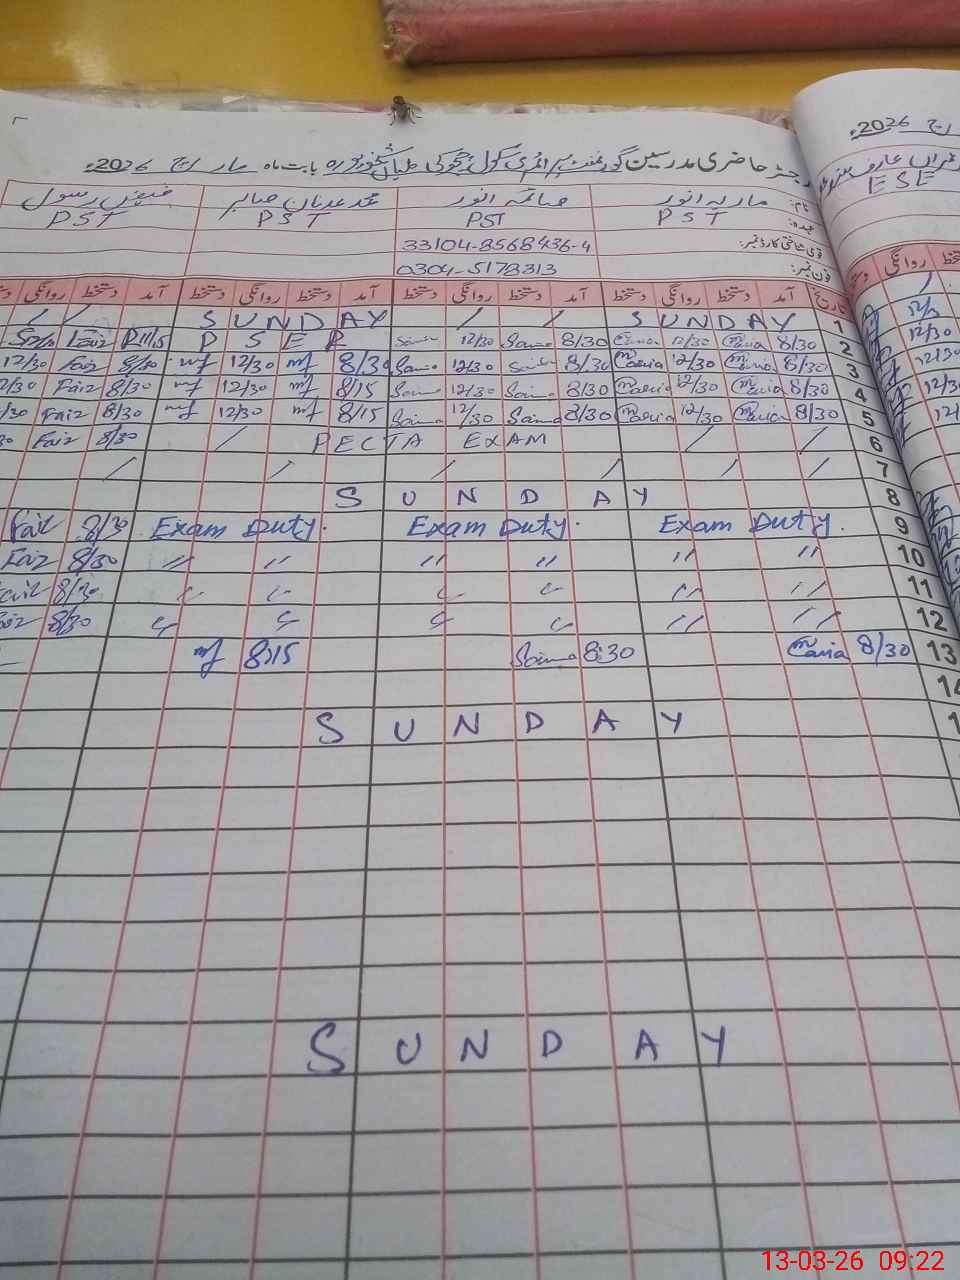 رجسٹر حاضری مدرسین گورنمنٹ پرائمری سکول بابت ماہ مارچ 2026ء
نام: ماریہ انور صائمہ انور محمد عدنان صابر فیض رسول
عہدہ: PST PST PST PST
قومی شناختی کارڈ نمبر: 33104-8568436-4
فون نمبر: 0304-5178313
تاریخ آمد دستخط روانگی دستخط آمد دستخط روانگی دستخط آمد دستخط روانگی دستخط آمد دستخط روانگی
1 SUNDAY / / SUNDAY / /
2 8/30 Maria 12/30 Maria 8/30 Saima 12/30 Saima PSER
3 8/30 Maria 12/30 Maria 8/30 Saima 12/30 Saima 8/30 mf 12/30 mf 8/30 Faiz 12/30
4 8/30 Maria 12/30 Maria 8/30 Saima 12/30 Saima 8/15 mf 12/30 mf 8/30 Faiz 12/30
5 8/30 Maria 12/30 Maria 8/30 Saima 12/30 Saima 8/15 mf 12/30 mf 8/30 Faiz
6 / / PECTA EXAM / 8/30 Faiz
7 / / / / / /
8 SUNDAY
9 Exam Duty. Exam Duty. Exam Duty. 8/30 Faiz
10 〃 〃 〃 〃 〃 〃 8/30 Faiz
11 〃 〃 〃 〃 〃 〃 8/30 Faiz
12 〃 〃 〃 〃 〃 〃 8/30 Faiz
13 8/30 Maria 8:30 Saima 8/15 mf
14
SUNDAY
SUNDAY
مارچ 2026ء
ESE
روانگی
12/30
12/30
13-03-26 09:22